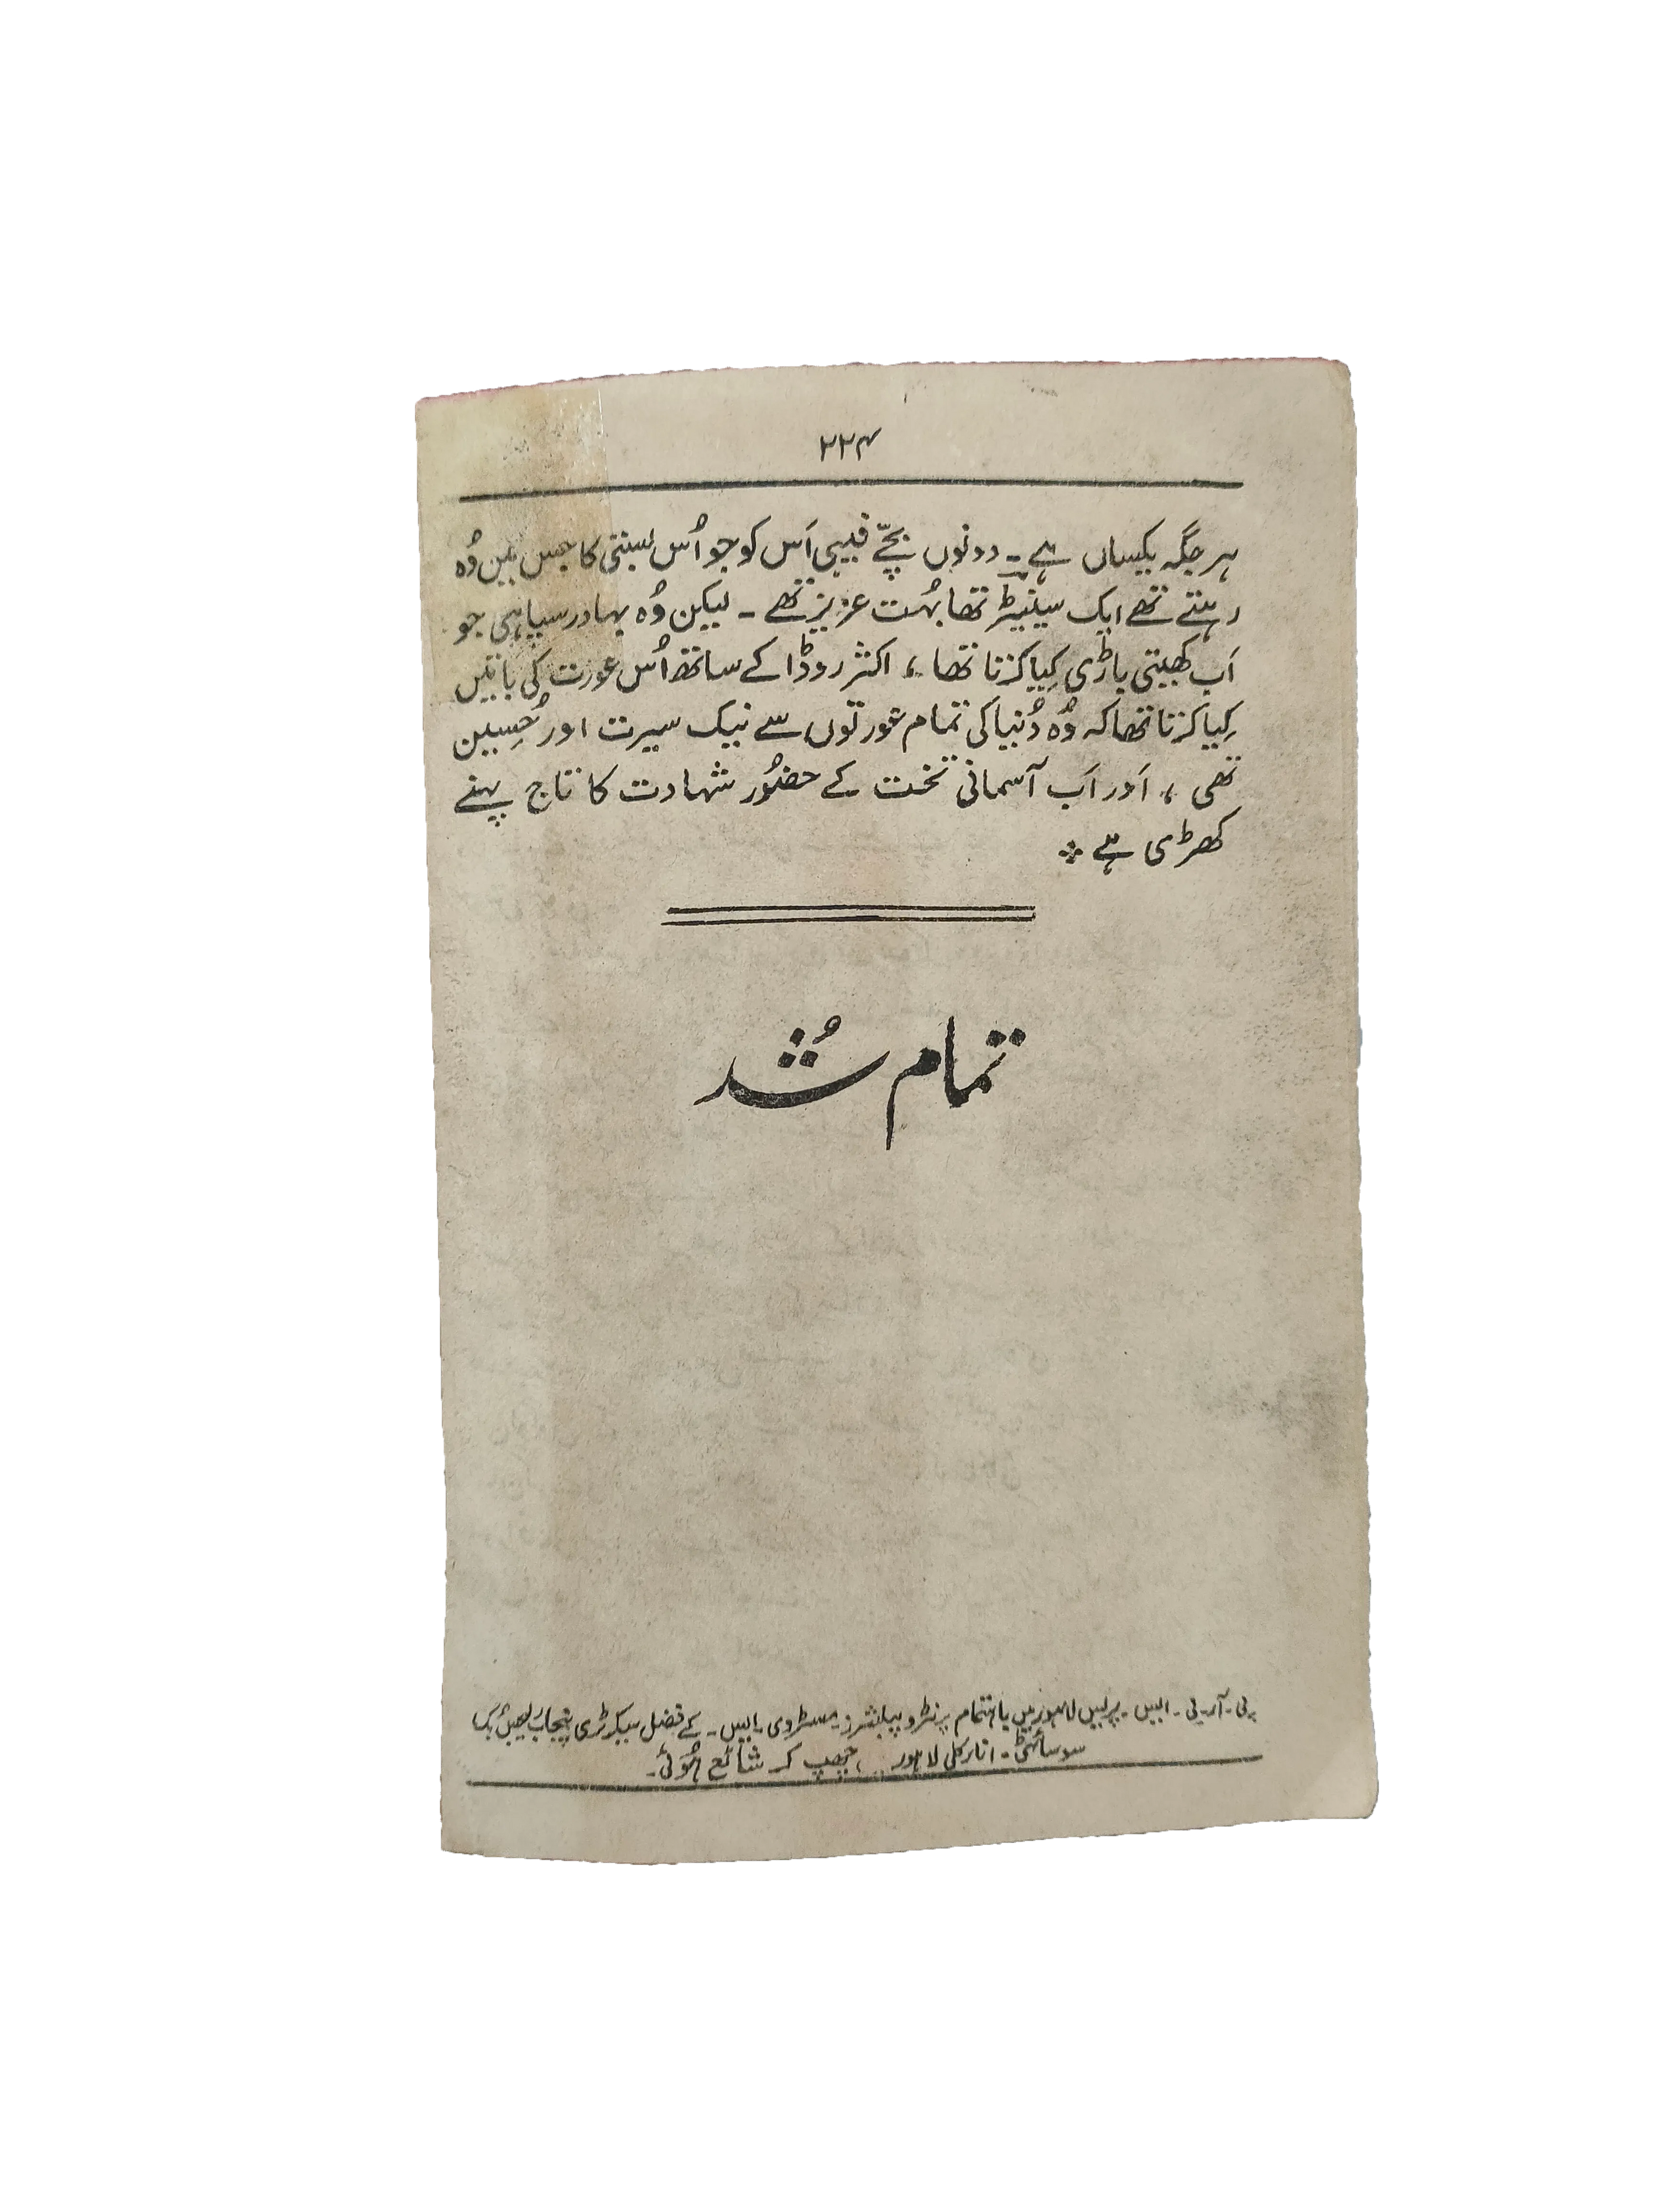 ۲۲۴
ہر جگہ یکساں ہے۔ دونوں بچّے فیبی اَس کو جو اُس بستی کا جس میں وُہ
رہتے تھے ایک سینیٹر تھا بہُت عزیز تھے۔ لیکن وُہ بہادر سپاہی جو
اَب کھیتی باڑی کِیا کرتا تھا، اکثر روڈا کے ساتھ اُس عورت کی باتیں
کِیا کرتا تھا کہ وُہ دُنیا کی تمام عورتوں سے نیک سیرت اور حُسِین
تھی، اَور اَب آسمانی تخت کے حضُور شہادت کا تاج پہنے
کھڑی ہے ۞
تمام شُد
پی۔آر۔بی۔ایس۔پریس لاہور میں باہتمام پرنٹر و پبلشرز مسٹر وی۔ایس۔کے فضل سیکرٹری پنجاب رلیجس بُک
سوسائٹی۔ انارکلی لاہور چھپ کر شائع ہُوئی۔